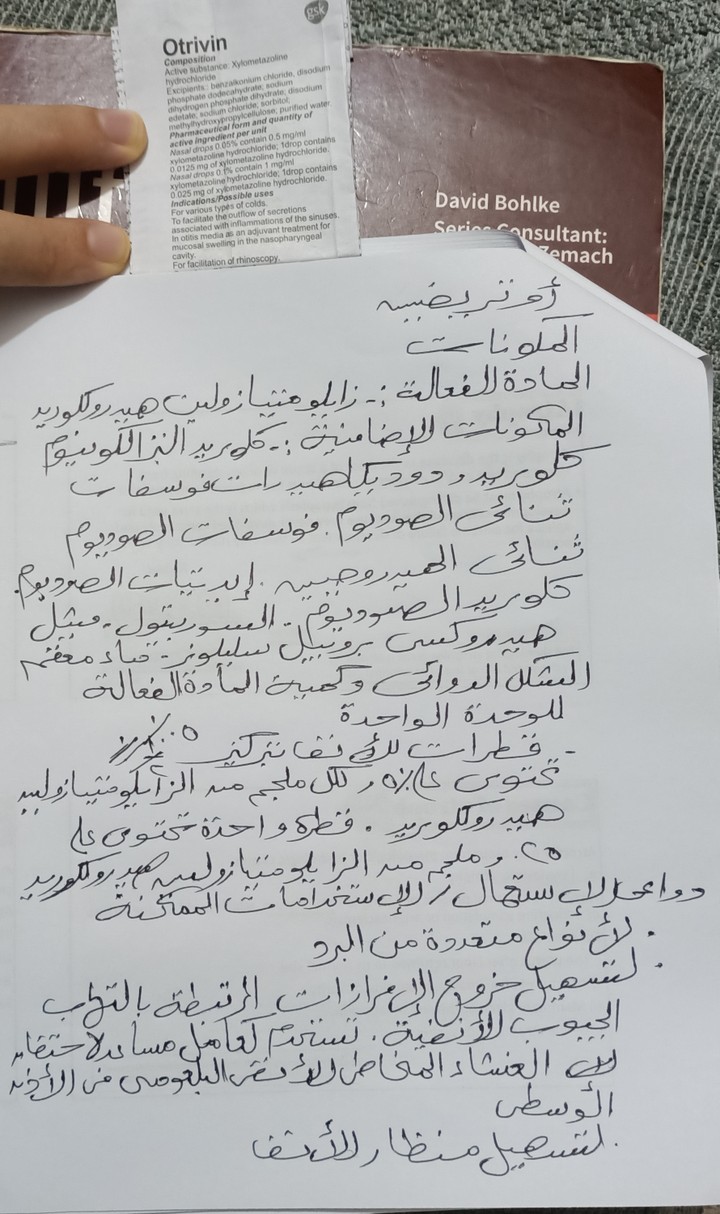 gsk
Otrivin
Composition
Active substance: Xylometazoline
hydrochloride
Excipients: benzalkonium chloride, disodium
phosphate dodecahydrate, sodium
dihydrogen phosphate dihydrate, disodium
edetate, sodium chloride, sorbitol,
methylhydroxypropylcellulose, purified water.
Pharmaceutical form and quantity of
active ingredient per unit
Nasal drops 0.05% contain 0.5 mg/ml
xylometazoline hydrochloride; 1drop contains
0.0125 mg of xylometazoline hydrochloride.
Nasal drops 0.1% contain 1 mg/ml
xylometazoline hydrochloride; 1drop contains
0.025 mg of xylometazoline hydrochloride.
Indications/Possible uses
For various types of colds.
To facilitate the outflow of secretions
associated with inflammations of the sinuses.
In otitis media as an adjuvant treatment for
mucosal swelling in the nasopharyngeal
cavity.
For facilitation of rhinoscopy.
David Bohlke
Series Consultant:
Zemach
أوتريفين
المكونات
المادة الفعالة :- زايلوميتازولين هيدروكلوريد
المكونات الإضافية :- كلوريد البنزالكونيوم
كلوريد، دوديكاهيدرات فوسفات
ثنائي الصوديوم. فوسفات الصوديوم
ثنائي الهيدروجين. إيديتات الصوديوم.
كلوريد الصوديوم - السوربيتول - ميثيل
هيدروكسي بروبيل سليلوز - ماء معقم
الشكل الدوائي وكمية المادة الفعالة
للوحدة الواحدة
- قطرات للأنف بتركيز
تحتوي على لكل ملجم من الزايلوميتازولين
هيدروكلوريد. قطرة واحدة تحتوي على
ملجم من الزايلوميتازولين هيدروكلوريد
دواعي الاستعمال / الإستخدامات الممكنة
. لأنواع متعددة من البرد
. لتسهيل خروج الإفرازات المرتبطة بالتهاب
الجيوب الأنفية. تستخدم كعامل مساعد لاحتقان
الغشاء المخاطي الأنفي البلعومي في الأذن
الوسطى
. لتسهيل منظار الأنف